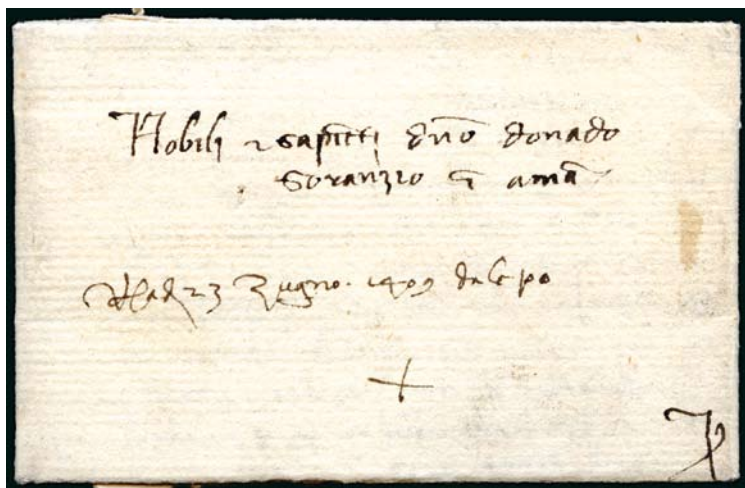 Nobili 7 sapīētī dn̄o donado
Soranzio ī amā
ad 23 zugno. 1409 da le po
+